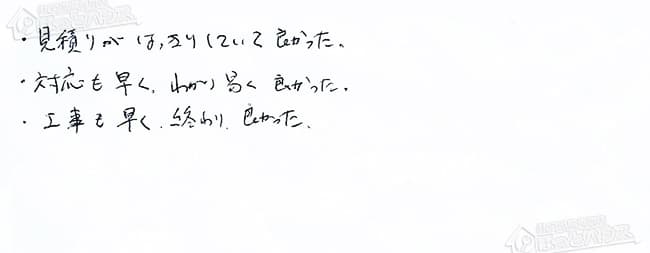 ・見積りがはっきりしていて良かった。
・対応も早く、わかり易く良かった。
・工事も早く、終わり、良かった。
ほっとハウス